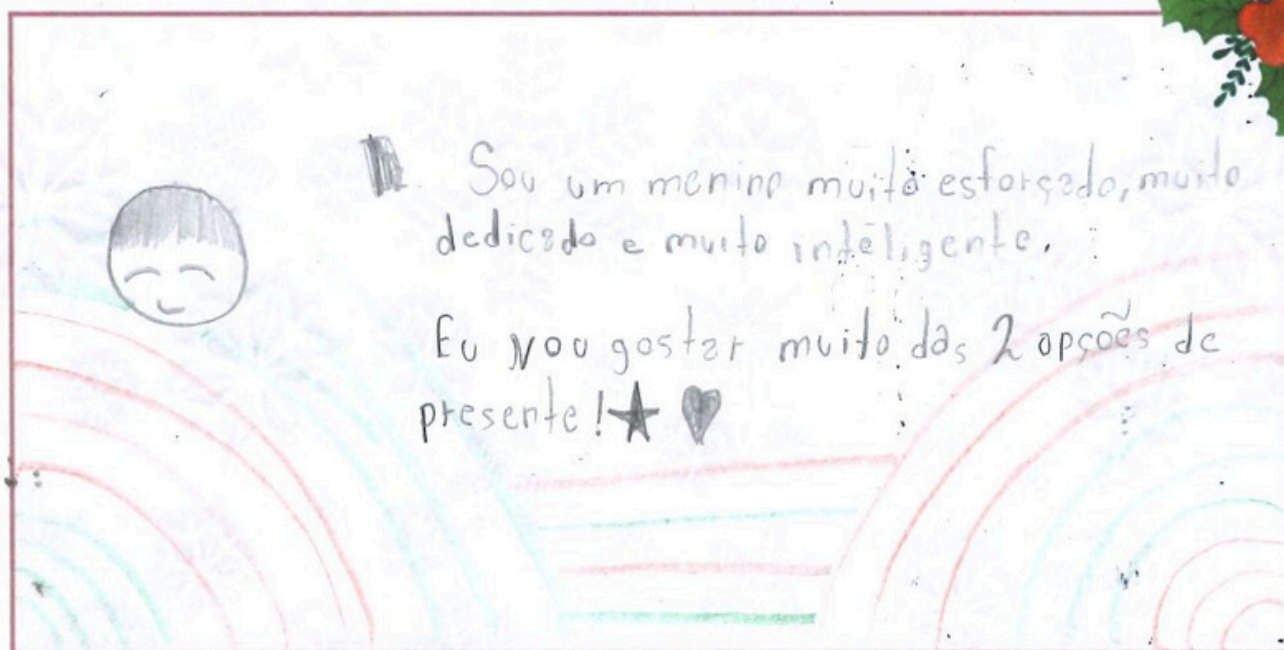 Sou um menino muito esforçado, muito
dedicado e muito inteligente.
Eu vou gostar muito das 2 opções de
presente! ★ ♥